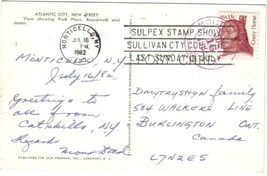 ATLANTIC CITY, NEW JERSEY
View showing Park Place, Boardwalk and
ocean.
MONTICELLO, NY
JUL 16
PM
1982
SULPEX STAMP SHOW
SULLIVAN CTY
LAST SUNDAY IN JULY
Crazy Horse
USA 13c
Monticello, N.Y
July 16/82
Greetings to
all from
Catskills, N.Y
Regards
DMYTRYSHYN family
584 WALKERS LINE
BURLINGTON ONT.
Canada
L7N2E5